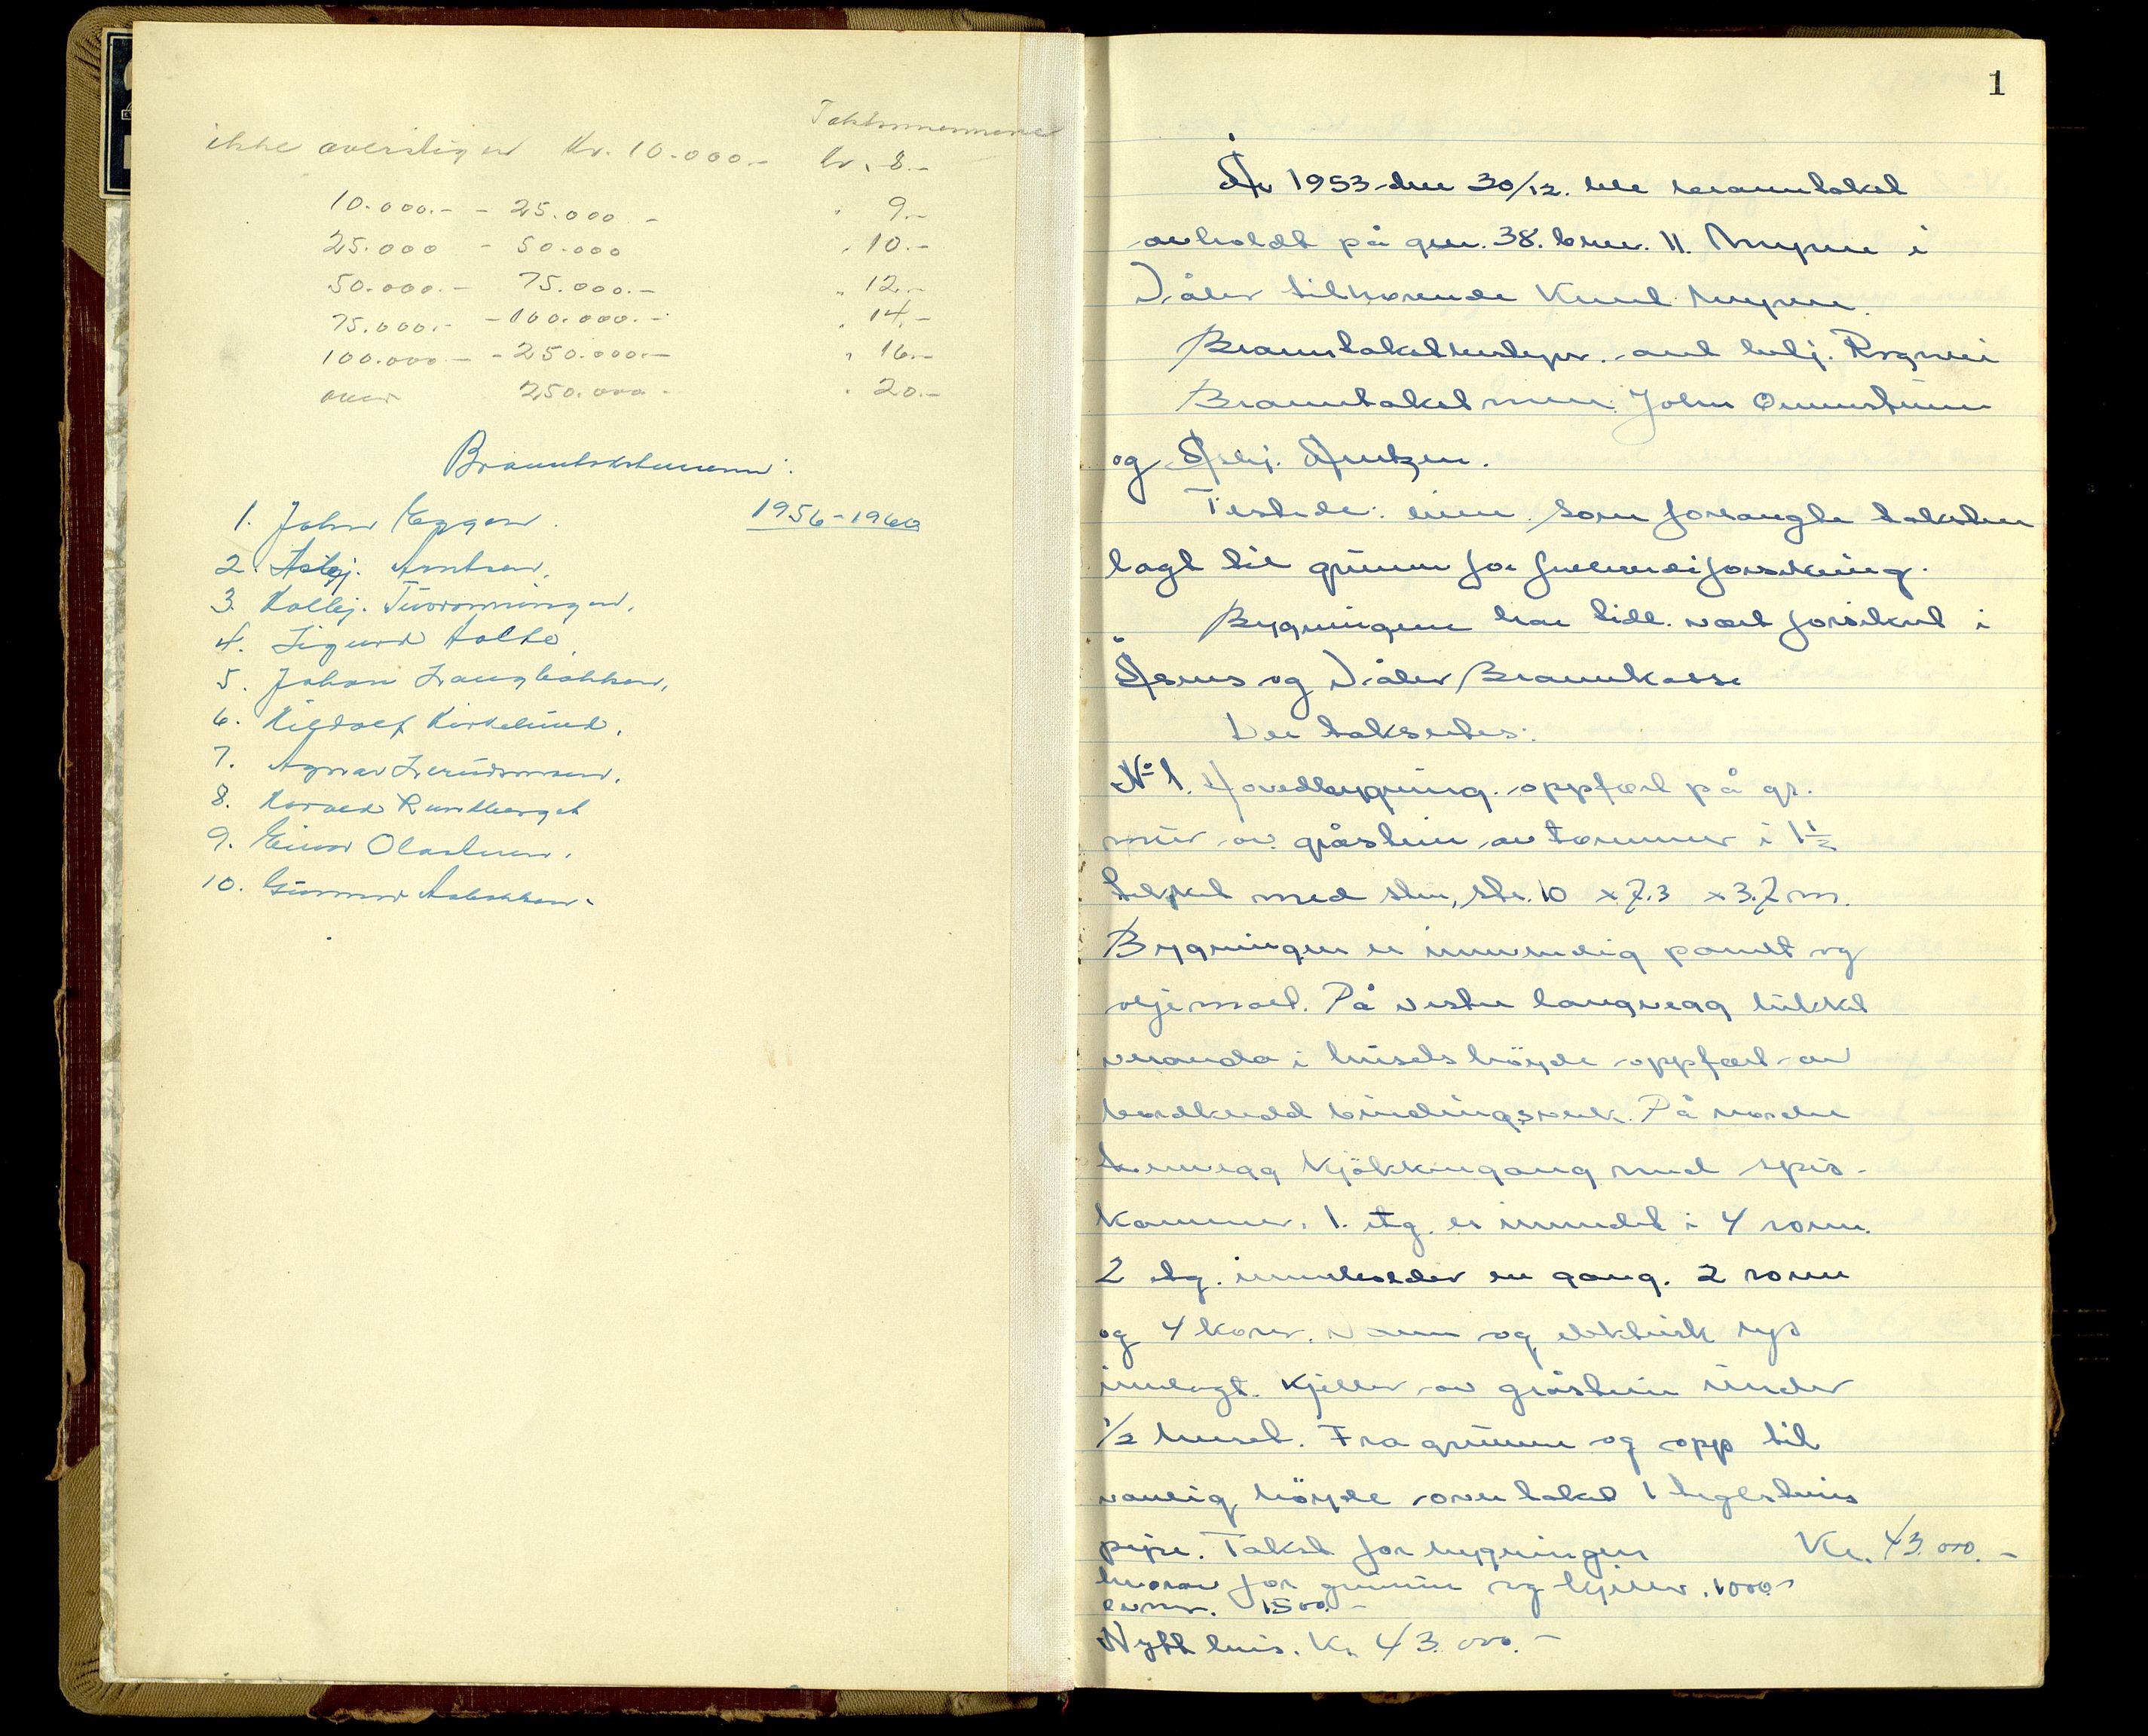 Takstmennene
ikke overstiger Kr. 10.000.- kr. 8.-
10.000.- - 25.000 - " 9.-
25.000 - 50.000 " 10.-
50.000.- 75.000.- " 12.-
75.000.- - 100.000.- " 14.-
100.000.- - 250.000.- " 16.-
over 250.000.- " 20.-
Branntakstmenn:
1. John Eggen. 1956-1960
2. Asbj. Arntsen.
3. Kolbj.
4. Sigurd Holte.
5. Johan Langbakken.
6. Kirkelund.
7. Agnar
8. Harald Rundberget
9. Einar Olastuen.
10. Gunnar
1
År 1953 den 30/12. ble branntakst
avholdt på gnr. 38. bnr. 11. Myrene i
Våler tilhørende Knut Myrene.
Branntakstbestyr. ant. Rognli
Branntakstmenn: John
og Asbj. Arntzen.
Tilstede: eieren som forlangte taksten
lagt til grunn for fullverdiforsikring.
Bygningene har tidl. vært forsikret i
Åsnes og Våler Brannkasse
Der takseres:
No 1. Hovedbygning. oppført på gr.
mur av gråstein av tømmer i 1 1/2
tekket med sten, str. 10 x 7.3 x 3.7 m.
Bygningen er innvendig panelt og
oljemalt. På vestre langvegg lukket
veranda i husets höyde oppført av
bordkledd bindingsverk. På nordre
tverrvegg kjökkengang med spis-
kammer. 1. etg. er innredet i 4 rom.
2 etg. inneholder en gang. 2 rom
og 4 kover. Vann og elektrisk lys
innlagt. Kjeller av gråstein under
1/2 huset. Fra grunnen og opp til
vanlig höyde over taket 1 teglsteins
pipe. Takst for bygningen Kr. 43.000.-
hvorav for grunn og kjeller. 1000.-
1500.-
Nytt hus. Kr. 43.000.-